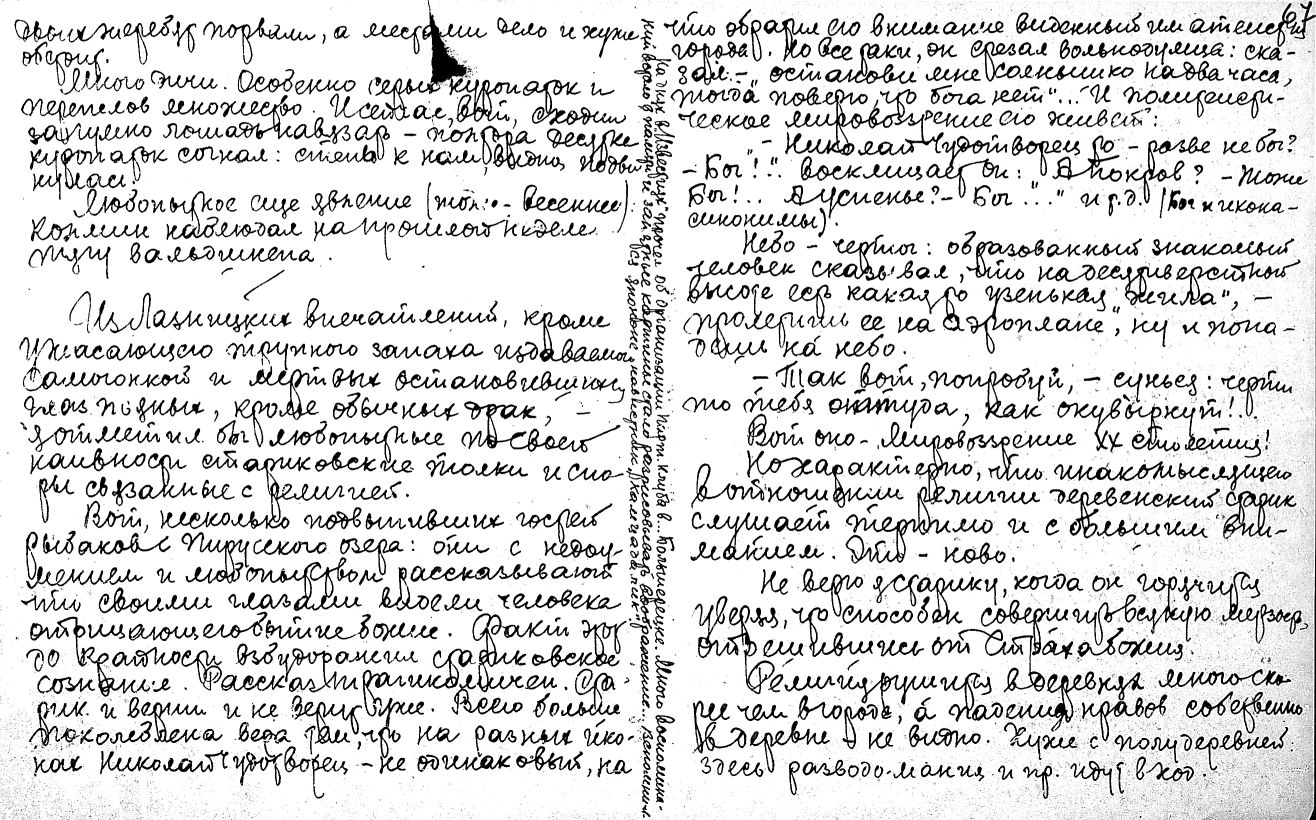 двух жеребят порвали, а местами дело и хуже
обстоит.
Много дичи. Особенно серых куропаток и
перепелов множество. И сейчас, вот, сходил
за гумно лошадь навязать – полтора десятка
куропаток согнал: степь к нам, видно, подви-
нулась.
Любопытное еще явление (тож – весеннее)
Козмин наблюдал на прошлой неделе
тягу вальдшнепа.
Из Лазницких впечатлений, кроме
ужасающего трупного запаха издаваемого
самогонкой и мертвых остановившихся
глаз пьяных, кроме обычных драк, –
я отметил бы любопытные по своей
наивности стариковские толки и спо-
ры связанные с религией.
Вот, несколько подвыпивших гостей
рыбаков с Пирусского озера: они с недоу-
мением и любопытством рассказывают
что своими глазами видели человека
отрицающего бытие божие. Факт этот
до крайности взбудоражил стариковское
сознание. Рассказ трагикомичен. Ста-
рик и верит и не верит уже. Всего больше
поколеблена вера тем, что на разных ико-
нах Николай Чудотворец – не одинаковый, на
На днях в Известиях прочел об организации Радио клуба в Большерецке. Много воспомина-
ний ворвалось в память и затейливые картины стало разрисовывать воображение...
67
что обратил его внимание виденный им атеист из
города. Но все таки, он срезал вольнодумца: ска-
зал – „останови мне солнышко на два часа,
тогда поверю, что бога нет“... И политеисти-
ческое мировоззрение его живет:
„– Николай Чудотворец то – разве не бог?
– Бог!“.. восклицает он: „А Покров? – Тоже
Бог!.. А Успенье? – Бог...“ и т.д. (Бог и икона –
синонимы).
Небо – чертог: образованный знакомый
человек сказывал, что на десятиверстной
высоте есть какая то узенькая „жила“, –
пролетишь ее на аэроплане, ну и попа-
дешь на небо.
– Так вот, попробуй, – сунься: черти
то тебя оттуда, как окувыркнут!..
Вот оно – Мировоззрение XX столетия!
Но характерно, что инакомыслящего
в отношении религии деревенский старик
слушает терпимо и с большим вни-
манием. Это – ново.
Не верю я старику, когда он горячится
уверяя, что способен совершить всякую мерзость,
отрешившись от Страха божия.
Религия рушится в деревнях много ско-
рее чем в городе, а падения нравов собственно
в деревне не видно. Хуже с полудеревней:
здесь разводо-мания и пр. идут в ход.